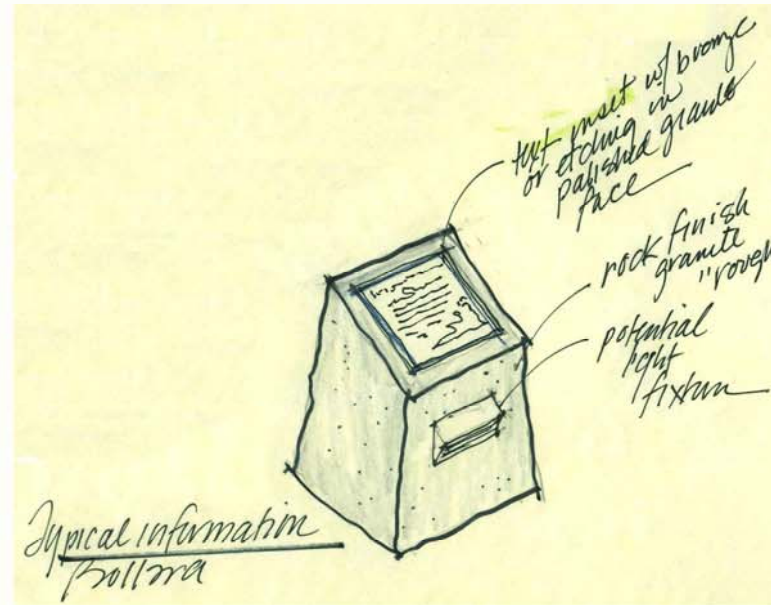 text inset w/ bronze
or etching in
polished granite
face
rock finish
granite
"rough
potential
light
fixture
Typical information
Bollard